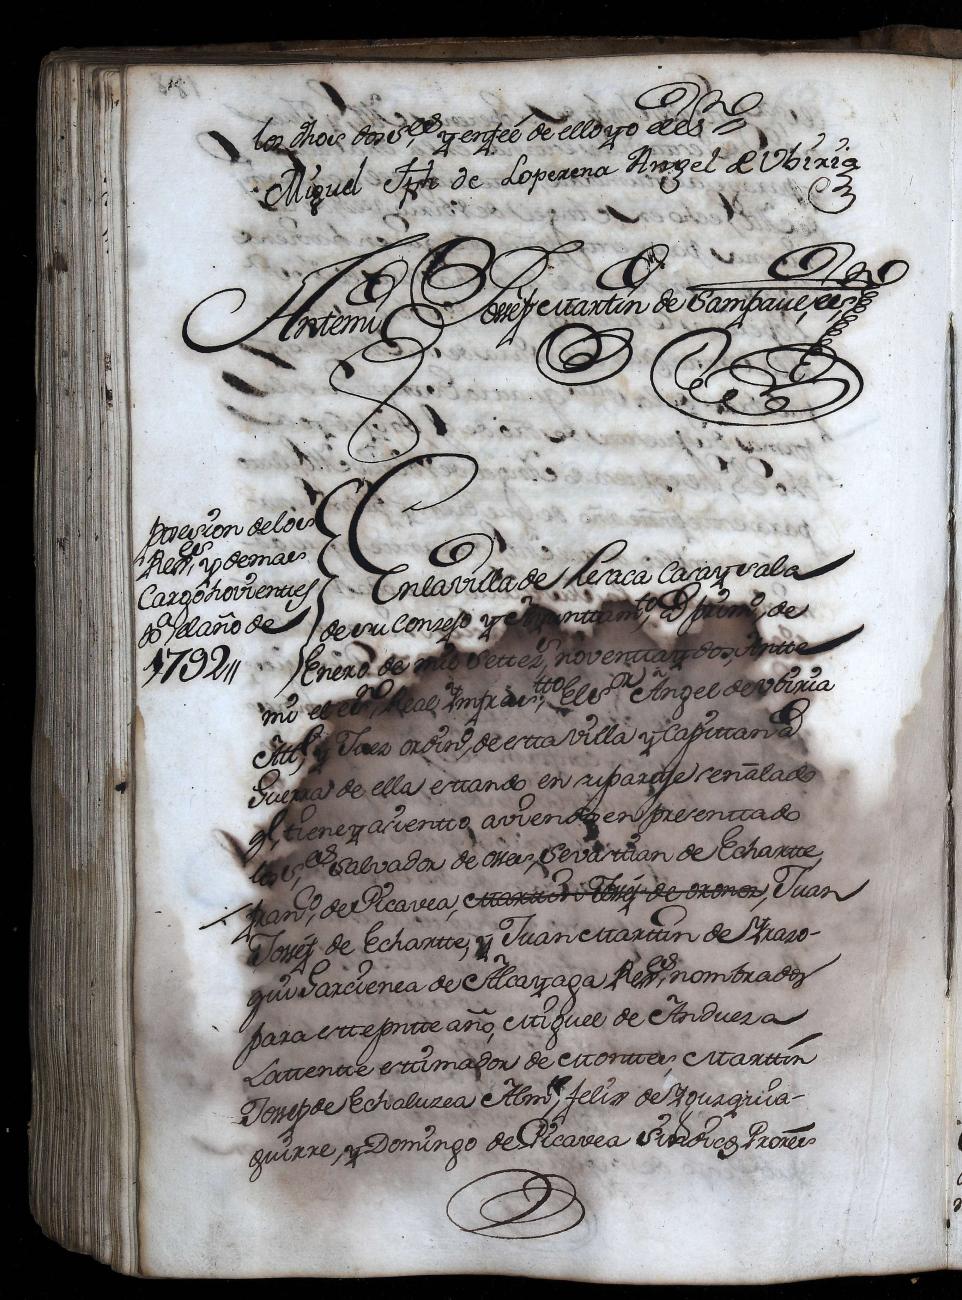 los dhos dos s.res, y en feé de ello yo el es.no
Miguel Jph de Loperena Angel de Vbiria
Antemi Josseph Martin de Sampaul, es.no
Posesion de los
Reg.res, y demas
Cargohovientes
del año de
1792,,
En la villa de Lesaca Casa y sala
de su Consejo y Ayuntam.to, â primº, de
Enero de mil settez.s, noventta y dos, Antte
mi el es.no Real, Ynfraes.tto, el s.or Angel de Vbiria
Alc.e y Juez ordin.º, de estta villa y Capittan â
Guerra de ella esttando en su paraje señalado
q.e tiene y asientto aviendo en presenttado
los s.res Salvador de Oses, Sevasttian de Echartte,
Fran.co, de Picavea, Martin Josef de Ordonez, Juan
Josef de Echartte, y Juan Martin de Yrazo-
qui Garcienea de Alcayaga Reg.res, nombrados
para estte pntte año, Miguel de Andueza
Lattentte esttimador de Monttes, Marttin
Josef de Echaluzea Alm.te, Felix de Yguzquia-
guirre, y Domingo de Picavea Sindicos Prores